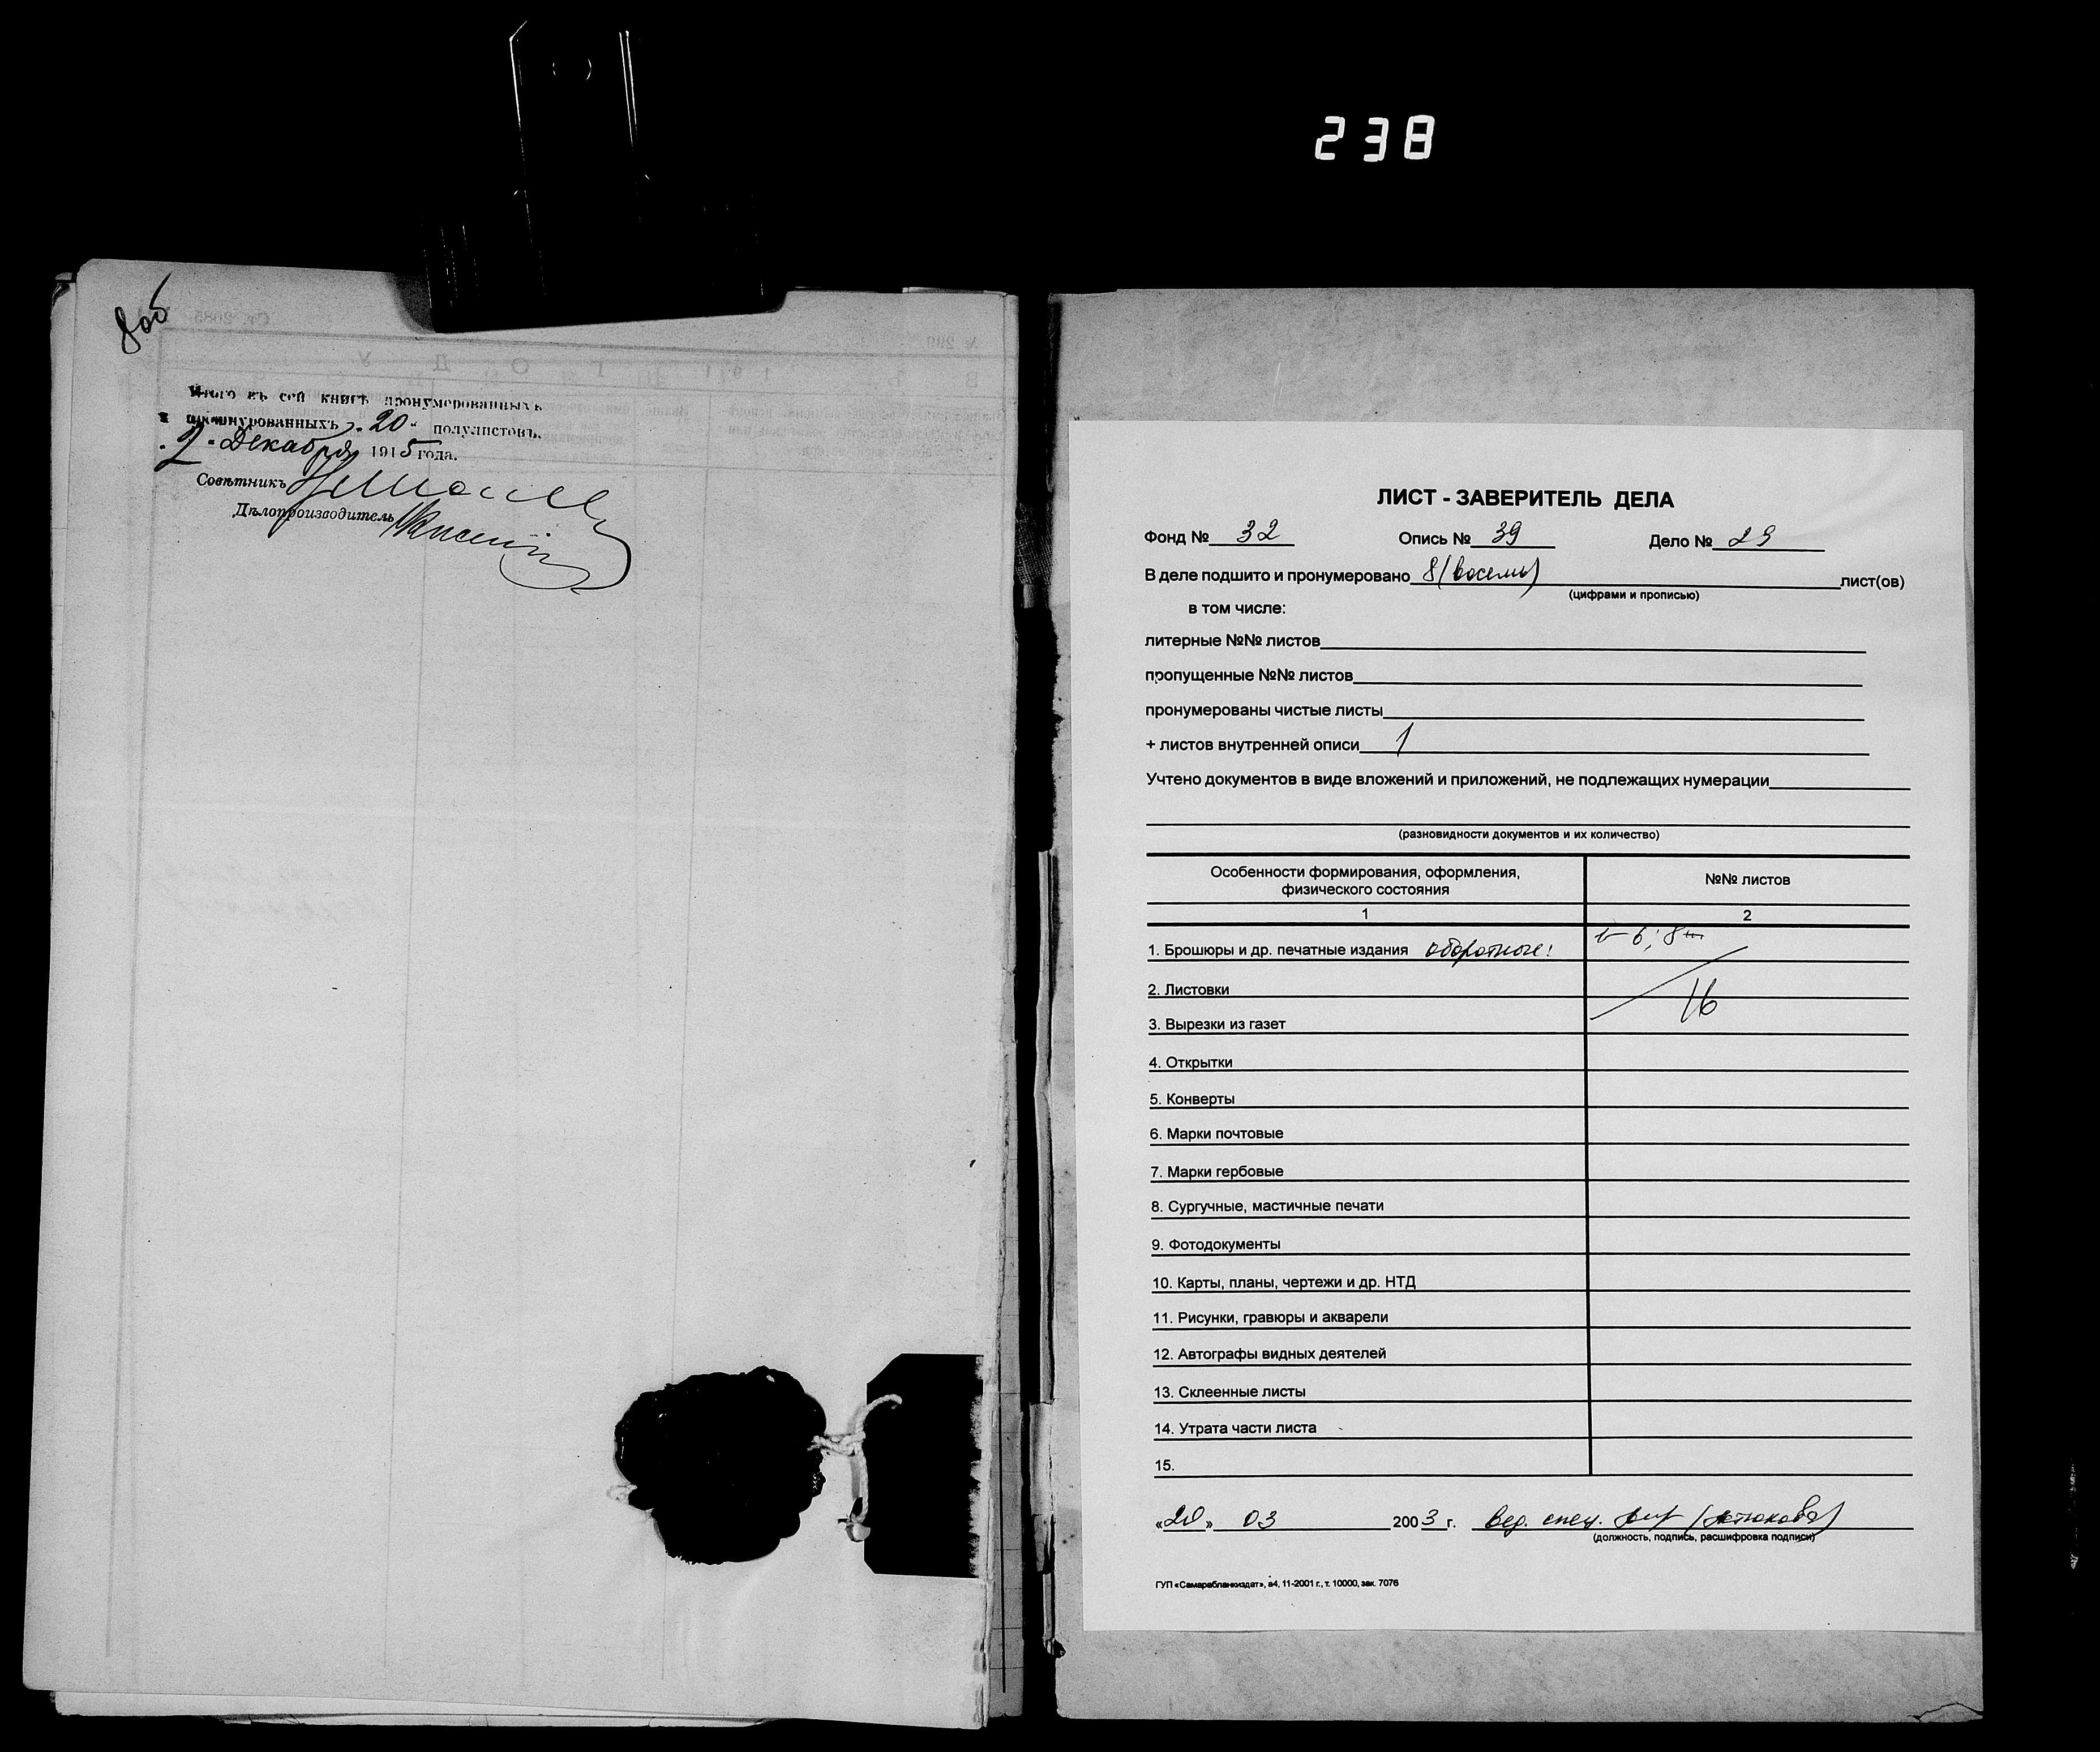 238
8об
Итого въ сей книгѣ пронумерованныхъ
и прошнурованныхъ „20“ полулистовъ.
„2“ Декабря 1915 года.
Совѣтникъ
Дѣлопроизводитель
ЛИСТ - ЗАВЕРИТЕЛЬ ДЕЛА
Фонд № 32 Опись № 39 Дело № 29
В деле подшито и пронумеровано 8 (восемь) лист(ов)
(цифрами и прописью)
в том числе:
литерные №№ листов
пропущенные №№ листов
пронумерованы чистые листы
+ листов внутренней описи 1
Учтено документов в виде вложений и приложений, не подлежащих нумерации
(разновидности документов и их количество)
Особенности формирования, оформления, физического состояния №№ листов
1 2
1. Брошюры и др. печатные издания оборотные: 6; 8
2. Листовки 16
3. Вырезки из газет
4. Открытки
5. Конверты
6. Марки почтовые
7. Марки гербовые
8. Сургучные, мастичные печати
9. Фотодокументы
10. Карты, планы, чертежи и др. НТД
11. Рисунки, гравюры и акварели
12. Автографы видных деятелей
13. Склеенные листы
14. Утрата части листа
15.
«20» 03 2003 г. Вед. спец.
(должность, подпись, расшифровка подписи)
ГУП «Самарабланкиздат», а4, 11-2001 г., т. 10000, зак. 7076